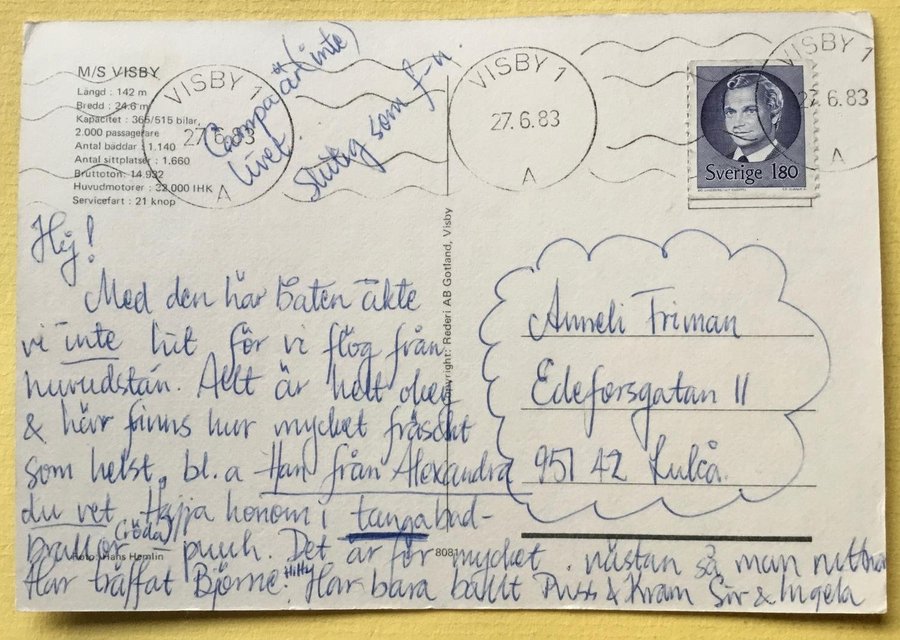 M/S VISBY
Längd : 142 m
Bredd : 24.6 m
Kapacitet : 365/515 bilar,
2.000 passagerare
Antal bäddar : 1.140
Antal sittplatser : 1.660
Bruttoton: 14.932
Huvudmotorer : 32.000 IHK
Servicefart : 21 knop
VISBY 1
27.6.83
A
Campa är (inte)
livet.
sluttig som f-n.
VISBY 1
27.6.83
A
VISBY 1
27.6.83
A
Sverige 180
Hej!
Med den här båten åkte
vi inte hit för vi flög från
huvudstan. Allt är helt okey
& här finns hur mycket fräscht
som helst, bl.a Han från Alexandra
du vet. honom i tangabad-
brallor (röda) puuh. Det är för mycket. nästan så man
Har träffat Björne. Har bara bällt Puss & Kram Siv & Ingela
Foto: Hans Hemlin
8081
Copyright: Rederi AB Gotland, Visby
Anneli Friman
Edeforsgatan 11
951 42 Luleå.